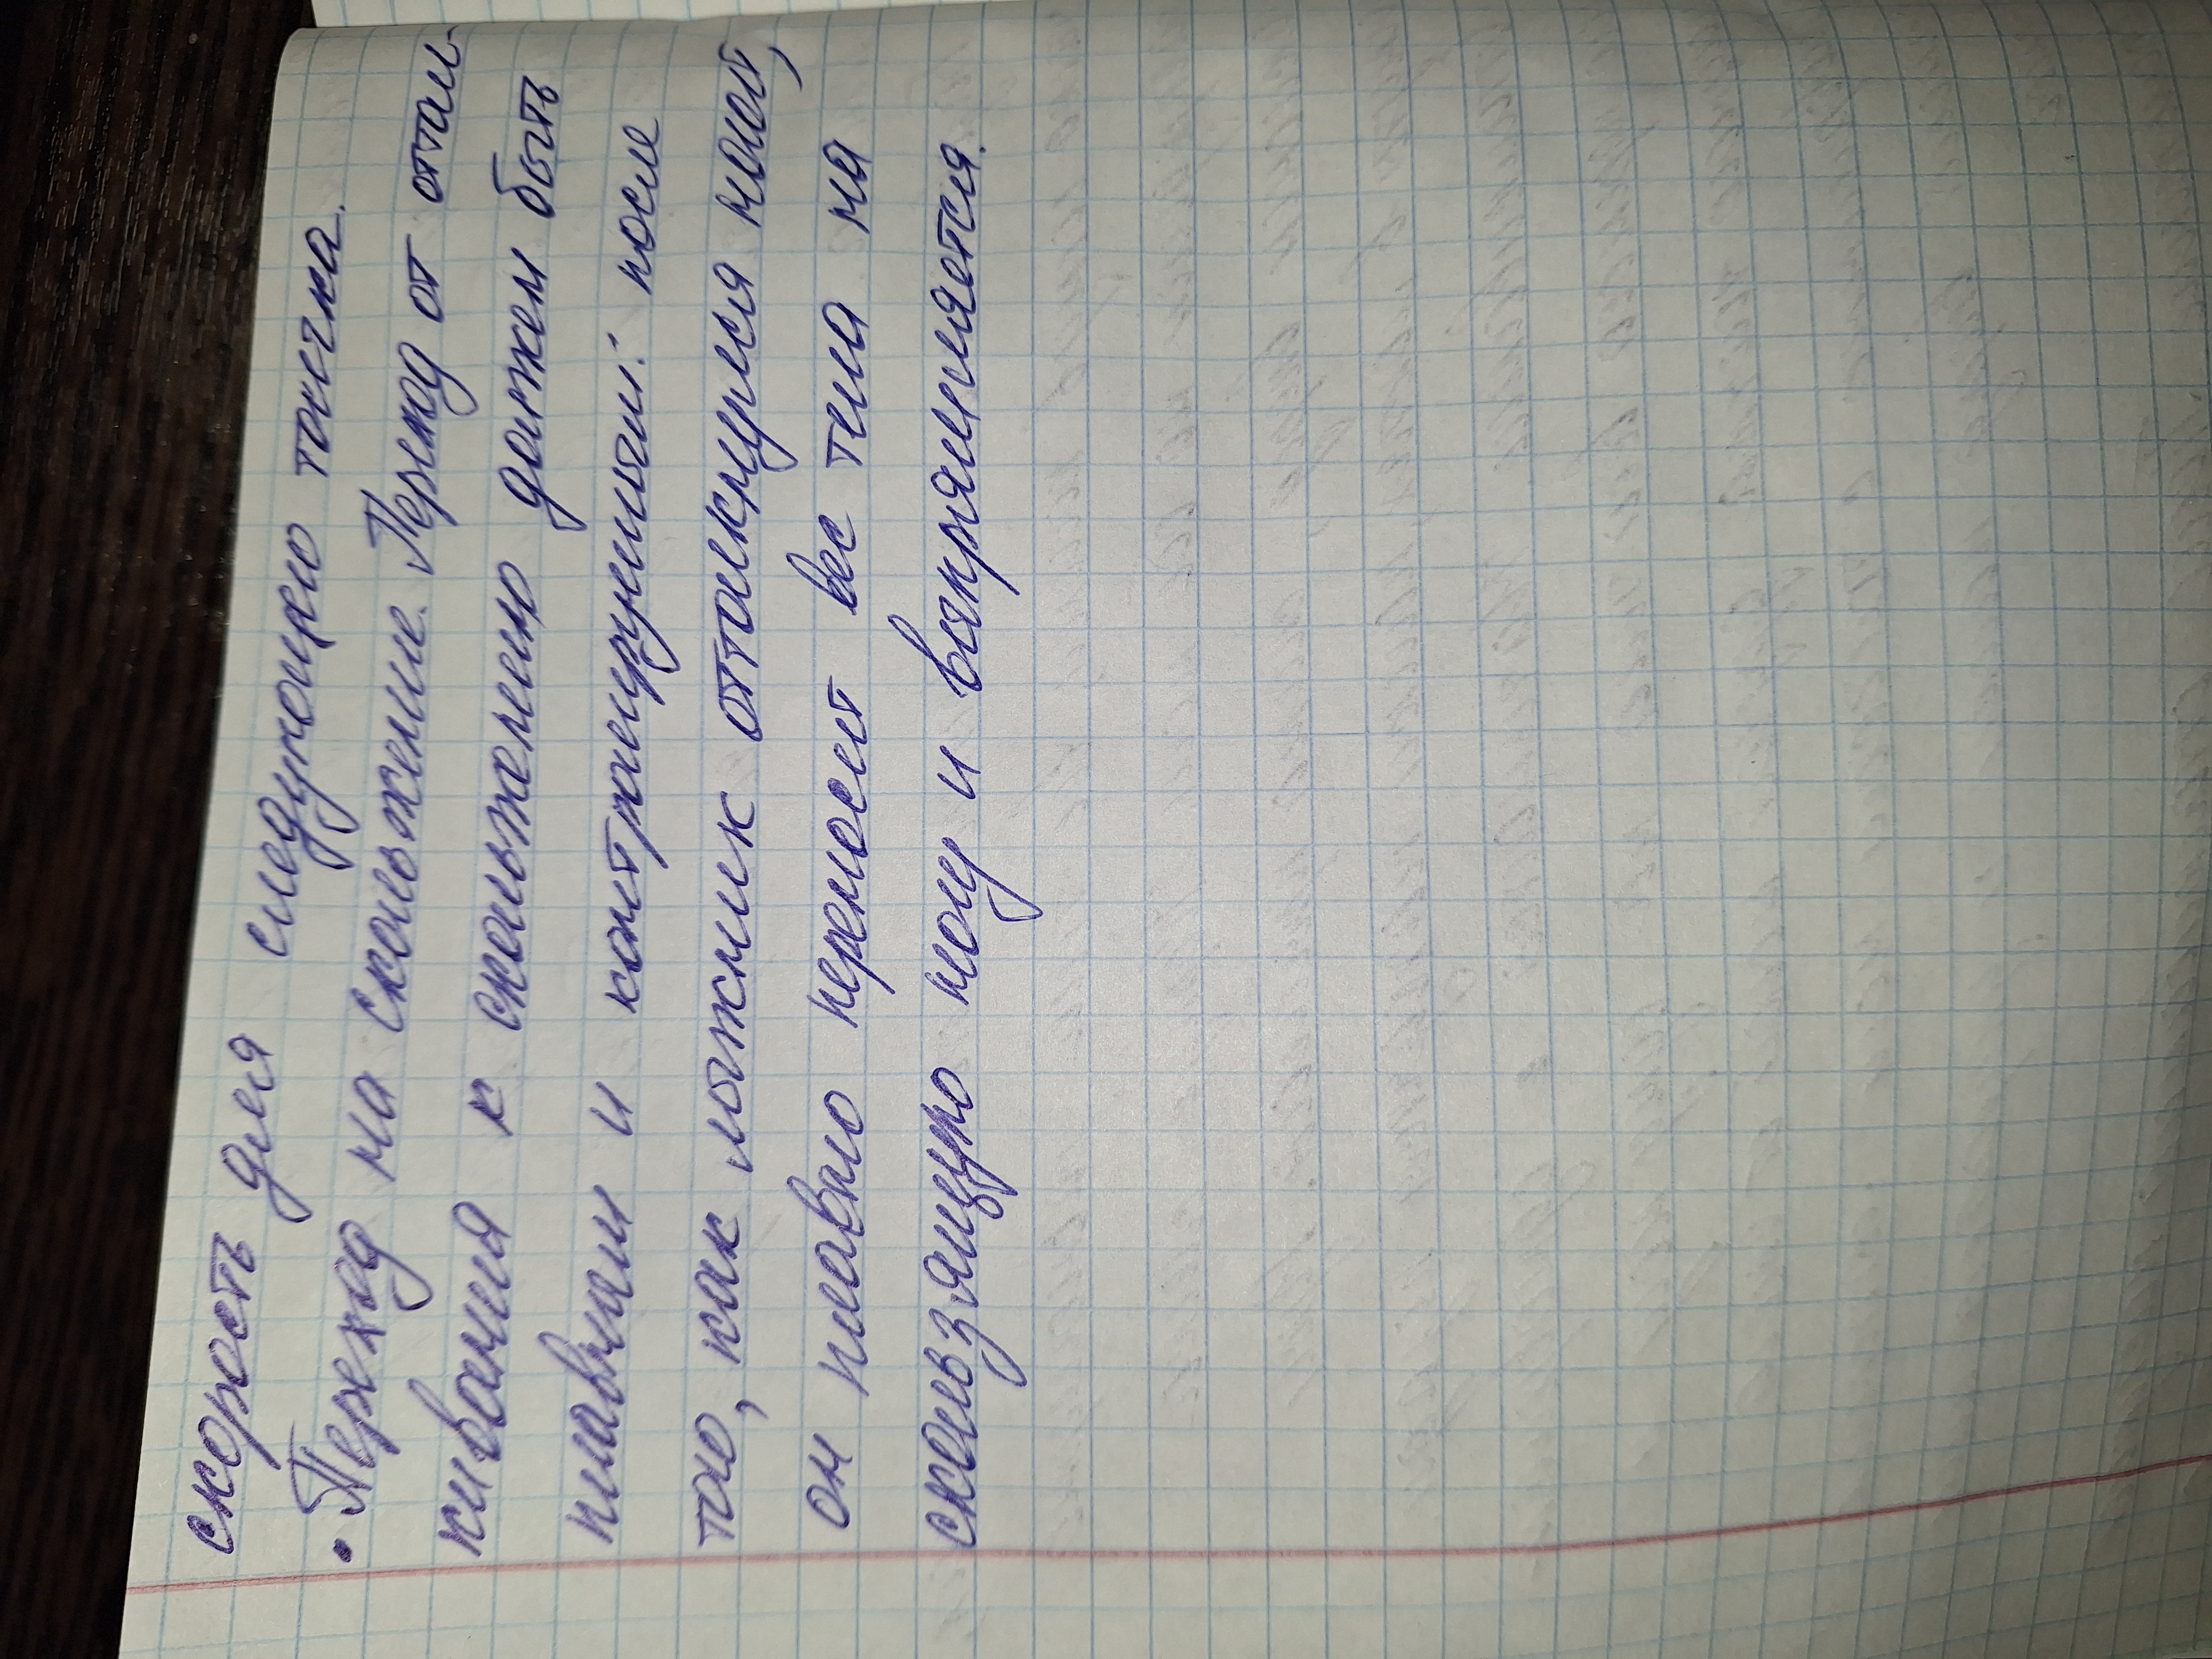 скорость для следующего толчка.
• Переход на скольжение. Переход от оттал-
кивания к скольжению должен быть
плавным и контролируемым: после
того, как лыжник оттолкнулся ногой,
он плавно переносит вес тела на
скользящую ногу и выпрямляется.